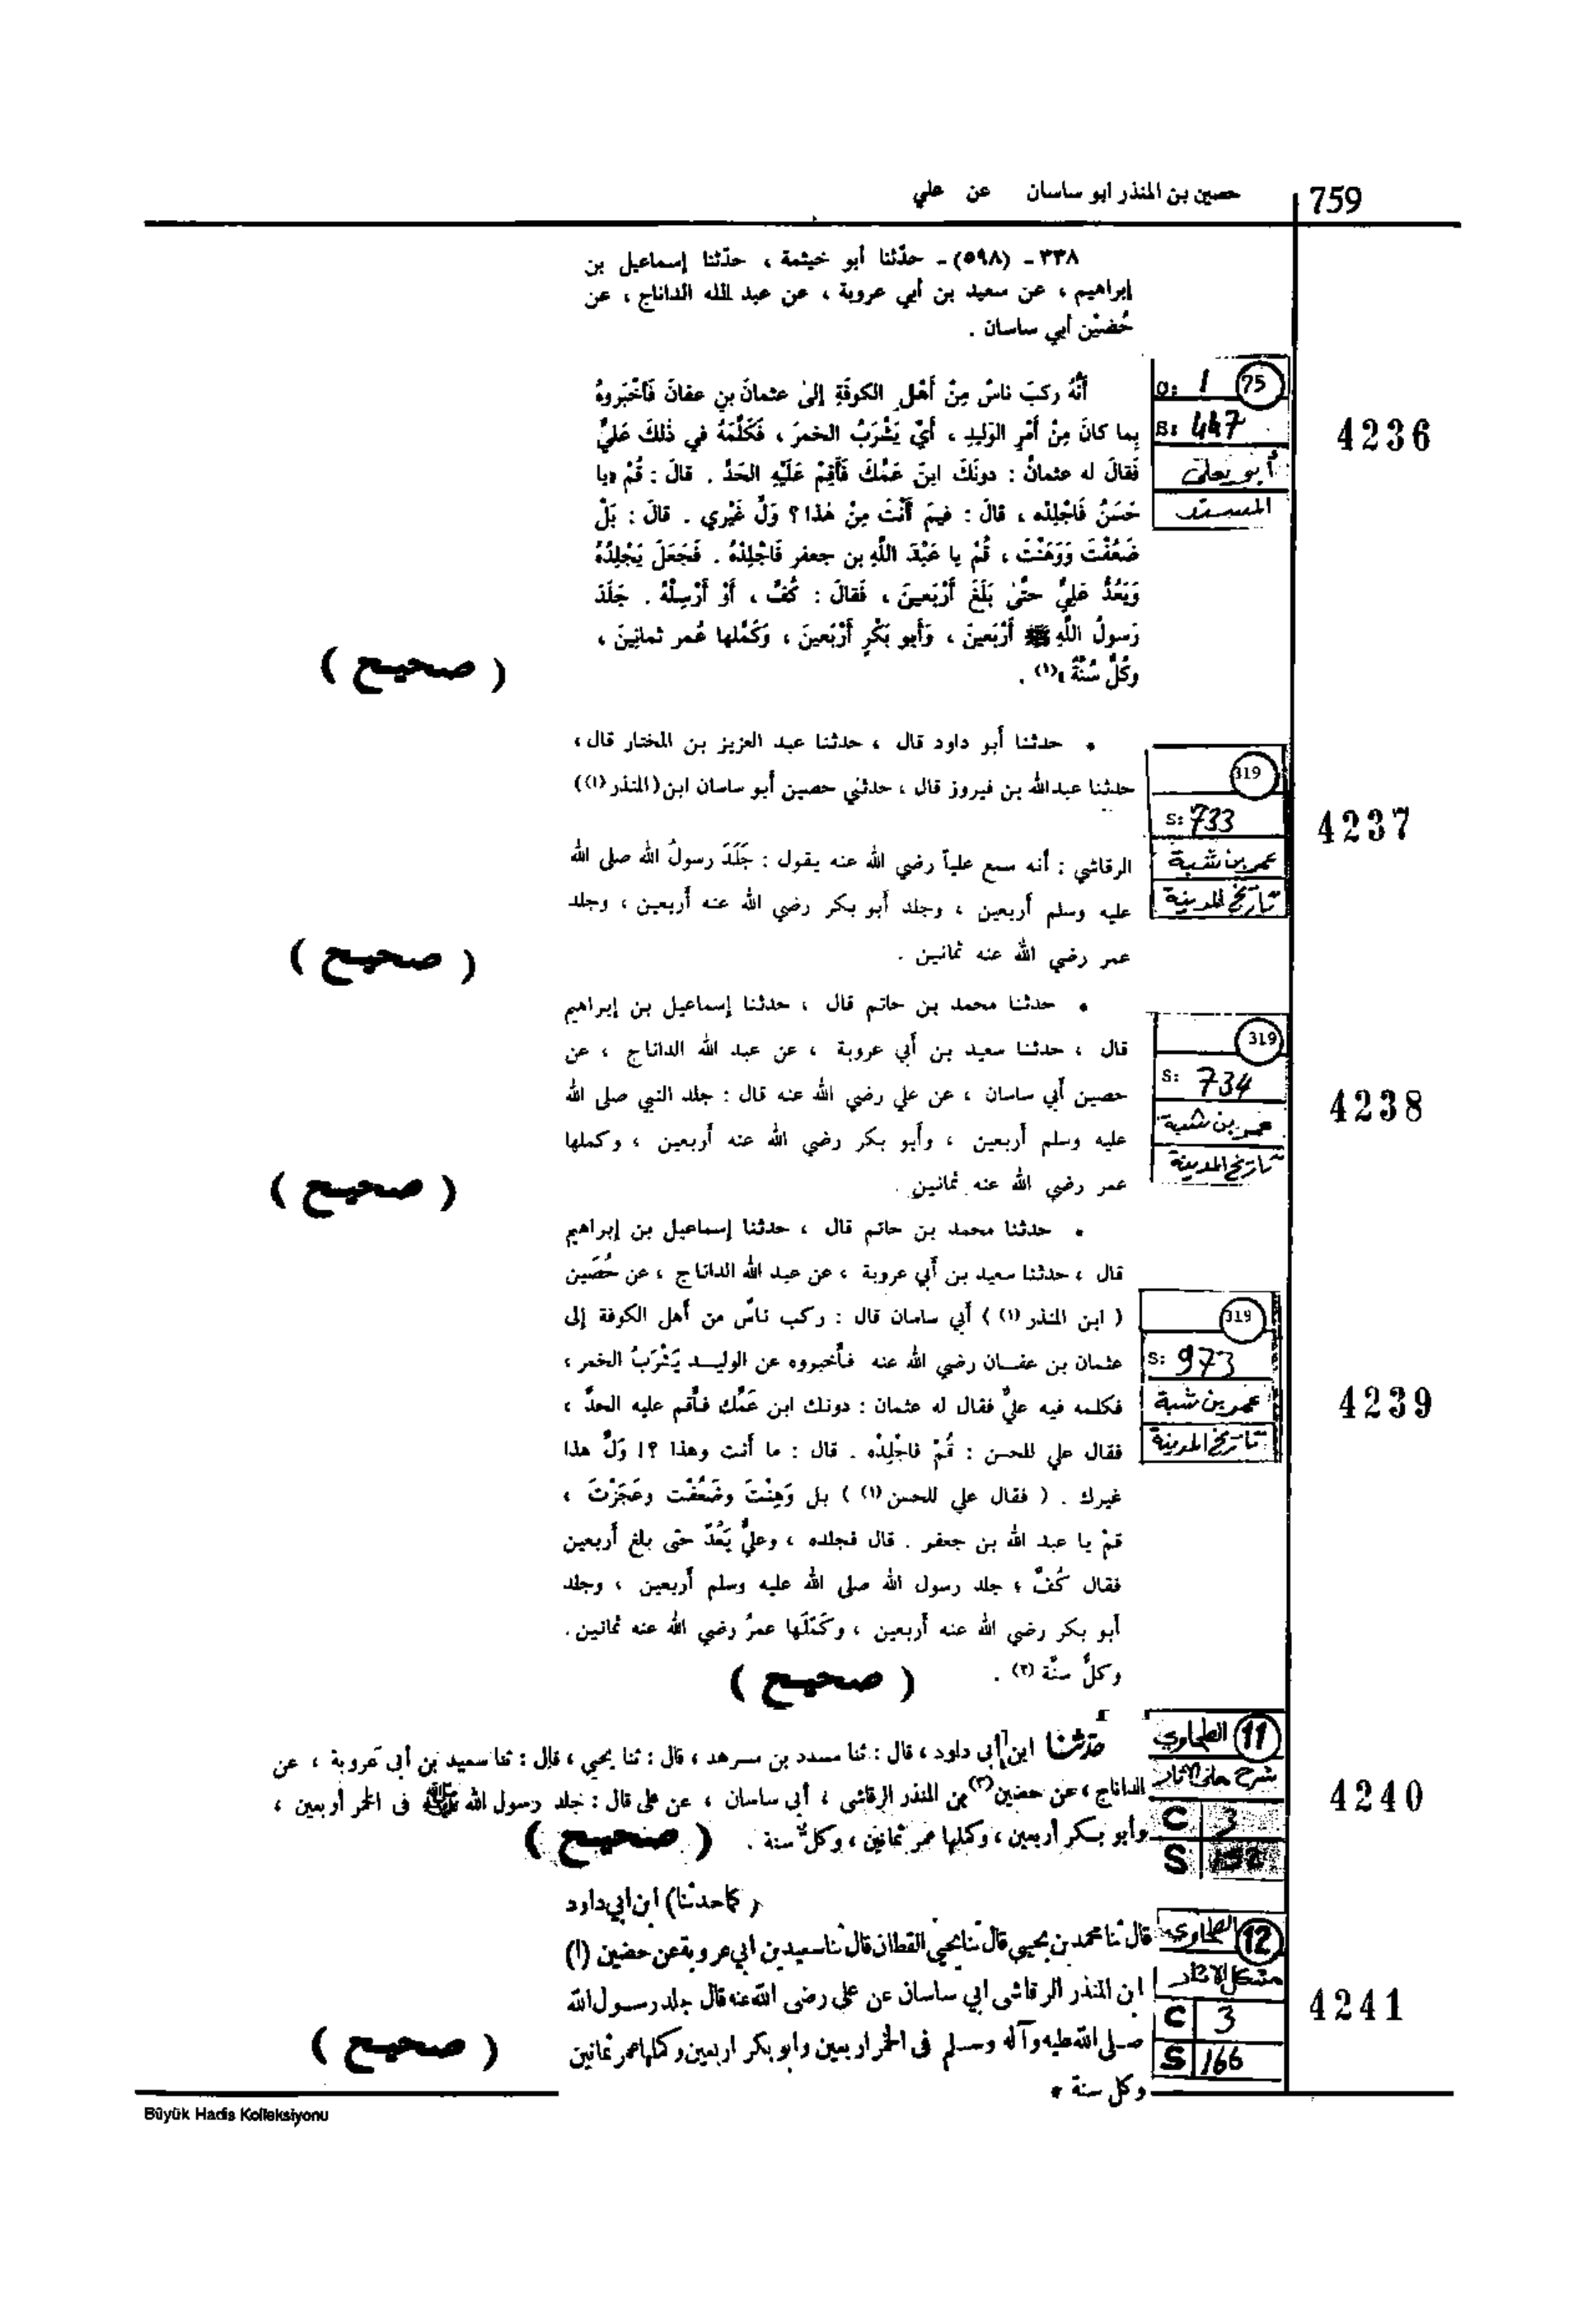 759
حصين بن المنذر ابو ساسان عن علي
٣٣٨ - (٥٩٨) - حدّثنا أبو خيثمة ، حدّثنا إسماعيل بن
إبراهيم ، عن سعيد بن أبي عروبة ، عن عبد الله الداناج ، عن
حُضَيْن أبي ساسان .
4236
75
C: 1
S: 447
أبو يعلى
المسند
أنَّهُ ركبَ ناسٌ مِنْ أَهْلِ الكوفَةِ إلىٰ عثمانَ بنِ عفانَ فَأَخْبَروهُ
بِما كانَ مِنْ أَمْرِ الوَليدِ ، أَيْ يَشْرَبُ الخمرَ ، فَكَلَّمَهُ في ذٰلكَ عَليٌّ
فَقالَ له عثمانُ : دونَكَ ابنَ عَمِّكَ فَأَقِمْ عَلَيْهِ الحَدَّ . قالَ : قُمْ «يا
حَسَنُ فَاجْلِدْه ، قالَ : فيمَ أَنْتَ مِنْ هٰذا؟ وَلِّ غَيْري . قالَ : بَلْ
ضَعُفْتَ وَوَهَنْتَ ، قُمْ يا عَبْدَ اللَّهِ بن جعفر فَاجْلِدْهُ . فَجَعَلَ يَجْلِدُهُ
وَيَعُدُّ عَليٌّ حتَّىٰ بَلَغَ أَرْبَعينَ ، فَقالَ : كُفَّ ، أَوْ أَرْسِلْهُ . جَلَدَ
رَسولُ اللَّهِ ﷺ أَرْبَعينَ ، وَأَبو بَكْرٍ أَرْبَعينَ ، وَكَمَّلها عُمر ثمانينَ ،
وَكُلٌّ سُنَّةٌ»(١) .
( صحيح )
4237
319
S: 733
عمر بن شبة
تاريخ المدينة
• حدثنا أبو داود قال ، حدثنا عبد العزيز بن المختار قال ،
حدثنا عبدالله بن فيروز قال ، حدثني حصين أبو ساسان ابن (المنذر(١))
الرقاشي : أنه سمع علياً رضي الله عنه يقول : جَلَدَ رسولُ الله صلى الله
عليه وسلم أربعين ، وجلد أبو بكر رضي الله عنه أربعين ، وجلد
عمر رضي الله عنه ثمانين .
( صحيح )
4238
319
S: 734
عمر بن شبة
تاريخ المدينة
• حدثنا محمد بن حاتم قال ، حدثنا إسماعيل بن إبراهيم
قال ، حدثنا سعيد بن أبي عروبة ، عن عبد الله الداناج ، عن
حصين أبي ساسان ، عن علي رضي الله عنه قال : جلد النبي صلى الله
عليه وسلم أربعين ، وأبو بكر رضي الله عنه أربعين ، وكملها
عمر رضي الله عنه ثمانين .
( صحيح )
4239
319
S: 973
عمر بن شبة
تاريخ المدينة
• حدثنا محمد بن حاتم قال ، حدثنا إسماعيل بن إبراهيم
قال ، حدثنا سعيد بن أبي عروبة ، عن عبد الله الداناج ، عن حُصَين
( ابن المنذر (١) ) أبي ساسان قال : ركب ناسٌ من أهل الكوفة إلى
عثمان بن عفـان رضي الله عنه فأخبروه عن الوليـد يَشْرَبُ الخمر ،
فكلمه فيه عليٌّ فقال له عثمان : دونك ابن عَمِّك فأقم عليه الحدَّ ،
فقال علي للحسن : قُمْ فاجْلِدْه . قال : ما أنت وهذا ؟! وَلِّ هذا
غيرك . ( فقال علي للحسن (١) ) بل وَهِنْتَ وضَعُفْت وعَجَزْتَ ،
قمْ يا عبد الله بن جعفر . قال فجلده ، وعليٌّ يَعُدّ حتى بلغ أربعين
فقال كُفَّ ؛ جلد رسول الله صلى الله عليه وسلم أربعين ، وجلد
أبو بكر رضي الله عنه أربعين ، وكَمَّلَها عمرُ رضي الله عنه ثمانين .
وكلٌّ سنَّة (٢) .
( صحيح )
4240
11
الطحاوي
شرح معاني الآثار
C 3
S
حدثنا ابن أبى داود ، قال : ثنا مسدد بن مسرهد ، قال : ثنا يحيى ، قال : ثنا سعيد بن أبى عروبة ، عن
الداناج ، عن حضين(٢) بن المنذر الرقاشى ، أبى ساسان ، عن على قال : جلد رسول الله ﷺ فى الخمر أربعين ،
وأبو بكر أربعين ، وكملها عمر ثمانين ، وكل سنة .
( صحيح )
4241
12
الطحاوي
مشكل الآثار
C 3
S 166
( كما حدثنا ) ابن ابي داود
قال ثنا محمد بن يحيى قال ثنا يحيى القطان قال ثنا سعيد بن ابي عروبة عن حضين (١)
ابن المنذر الرقاشى ابي ساسان عن على رضى الله عنه قال جلد رسول الله
صلى الله عليه وآله وسلم فى الخمر اربعين وابو بكر اربعين وكملها عمر ثمانين
وكل سنة *
( صحيح )
Büyük Hadis Kolleksiyonu